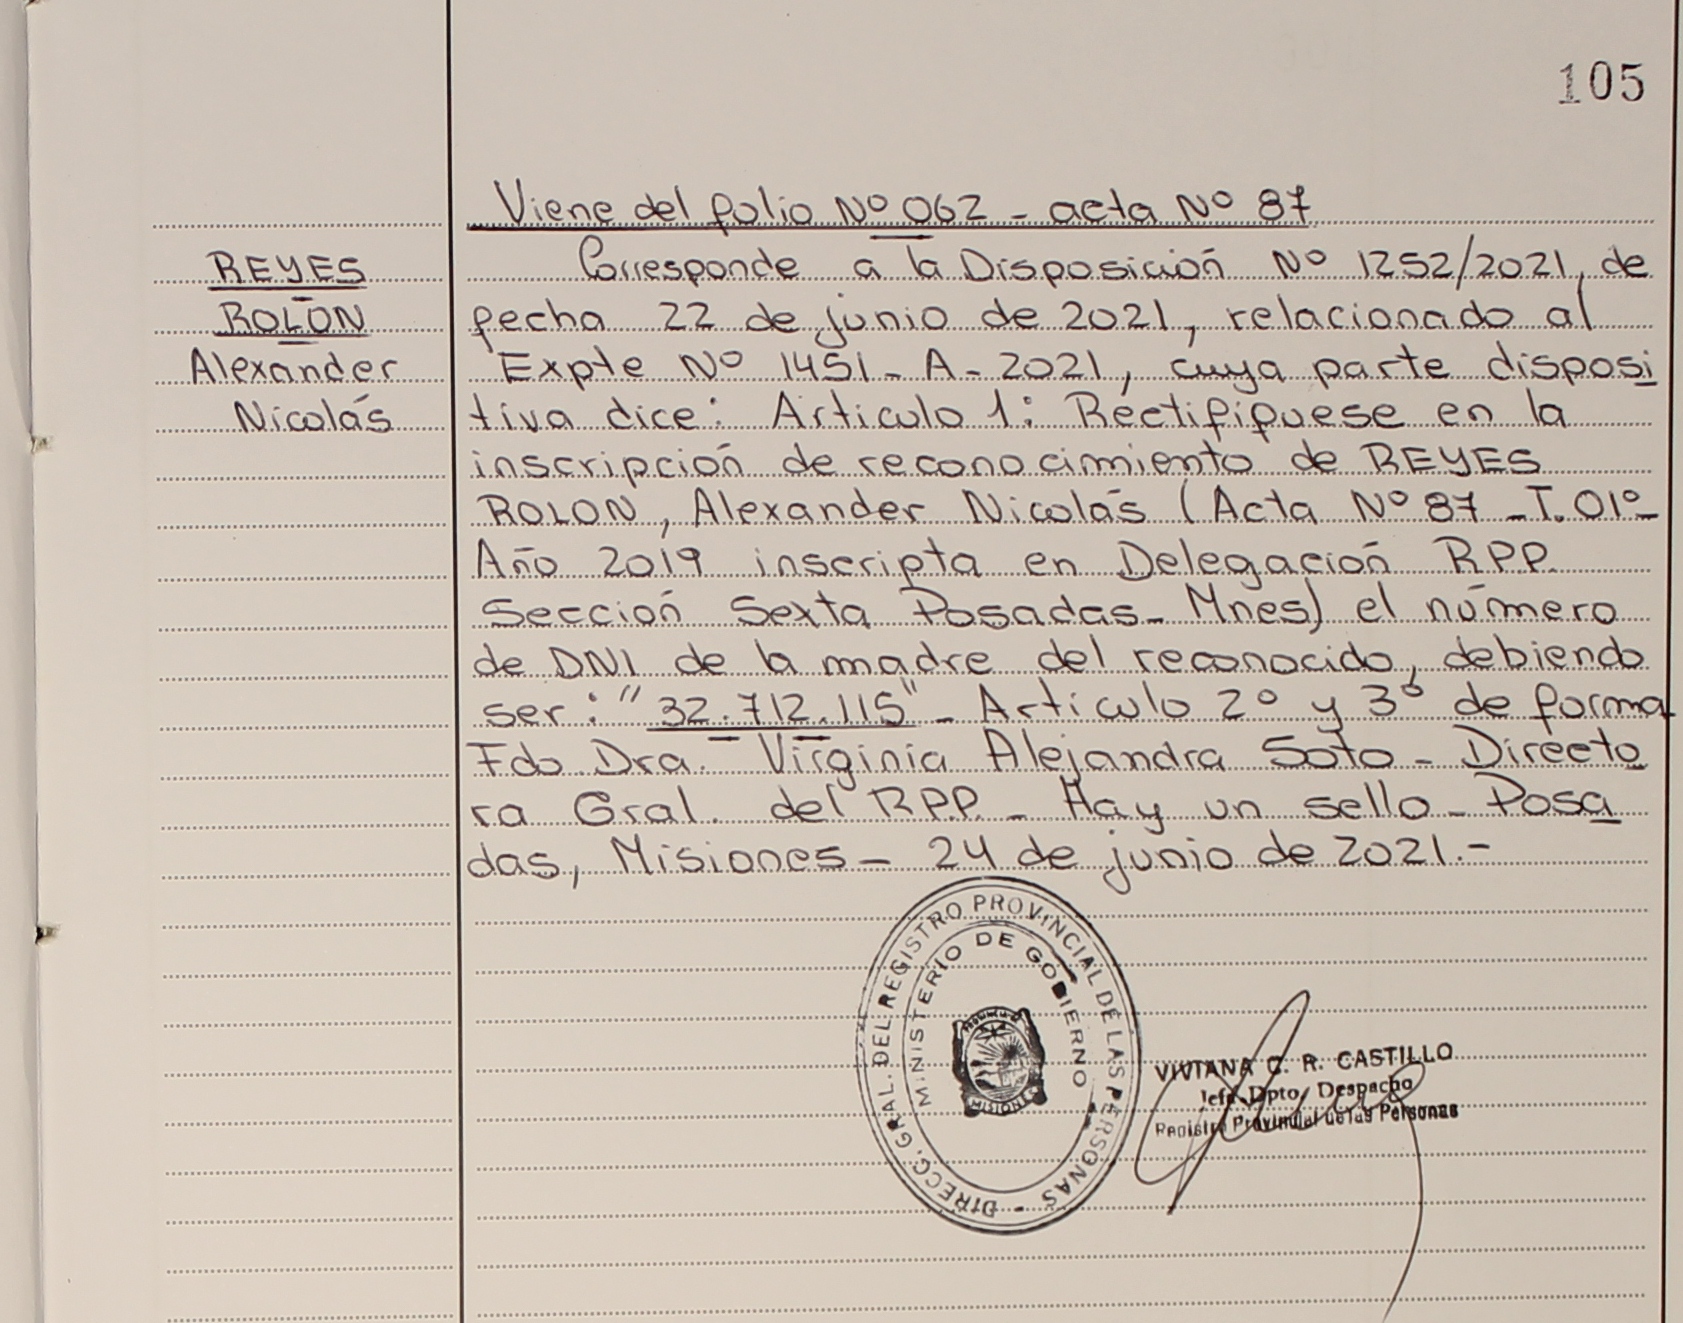 105
Viene del folio Nº 062 - acta Nº 87
REYES
ROLON
Alexander
Nicolás
Corresponde a la Disposición Nº 1252/2021, de
fecha 22 de junio de 2021, relacionado al
Expte Nº 1451 - A - 2021, cuya parte disposi
tiva dice: Articulo 1: Rectifífuese en la
inscripción de reconocimiento de REYES
ROLON, Alexander Nicolás (Acta Nº 87 - T. 01º -
Año 2019 inscripta en Delegación RPP.
Sección Sexta Posadas - Mnes) el número
de DNI de la madre del reconocido, debiendo
ser: "32.712.115" - Articulo 2º y 3º de forma
Fdo. Dra. Virginia Alejandra Soto - Directo
ra Gral. del RPP. - Hay un sello - Posa
das, Misiones - 24 de junio de 2021.-
DIRECC. GRAL. DEL REGISTRO PROVINCIAL DE LAS PERSONAS -
MINISTERIO DE GOBIERNO
MISIONES
VIVIANA C. R. CASTILLO
Jefe Dpto. Despacho
Registro Provincial de las Personas